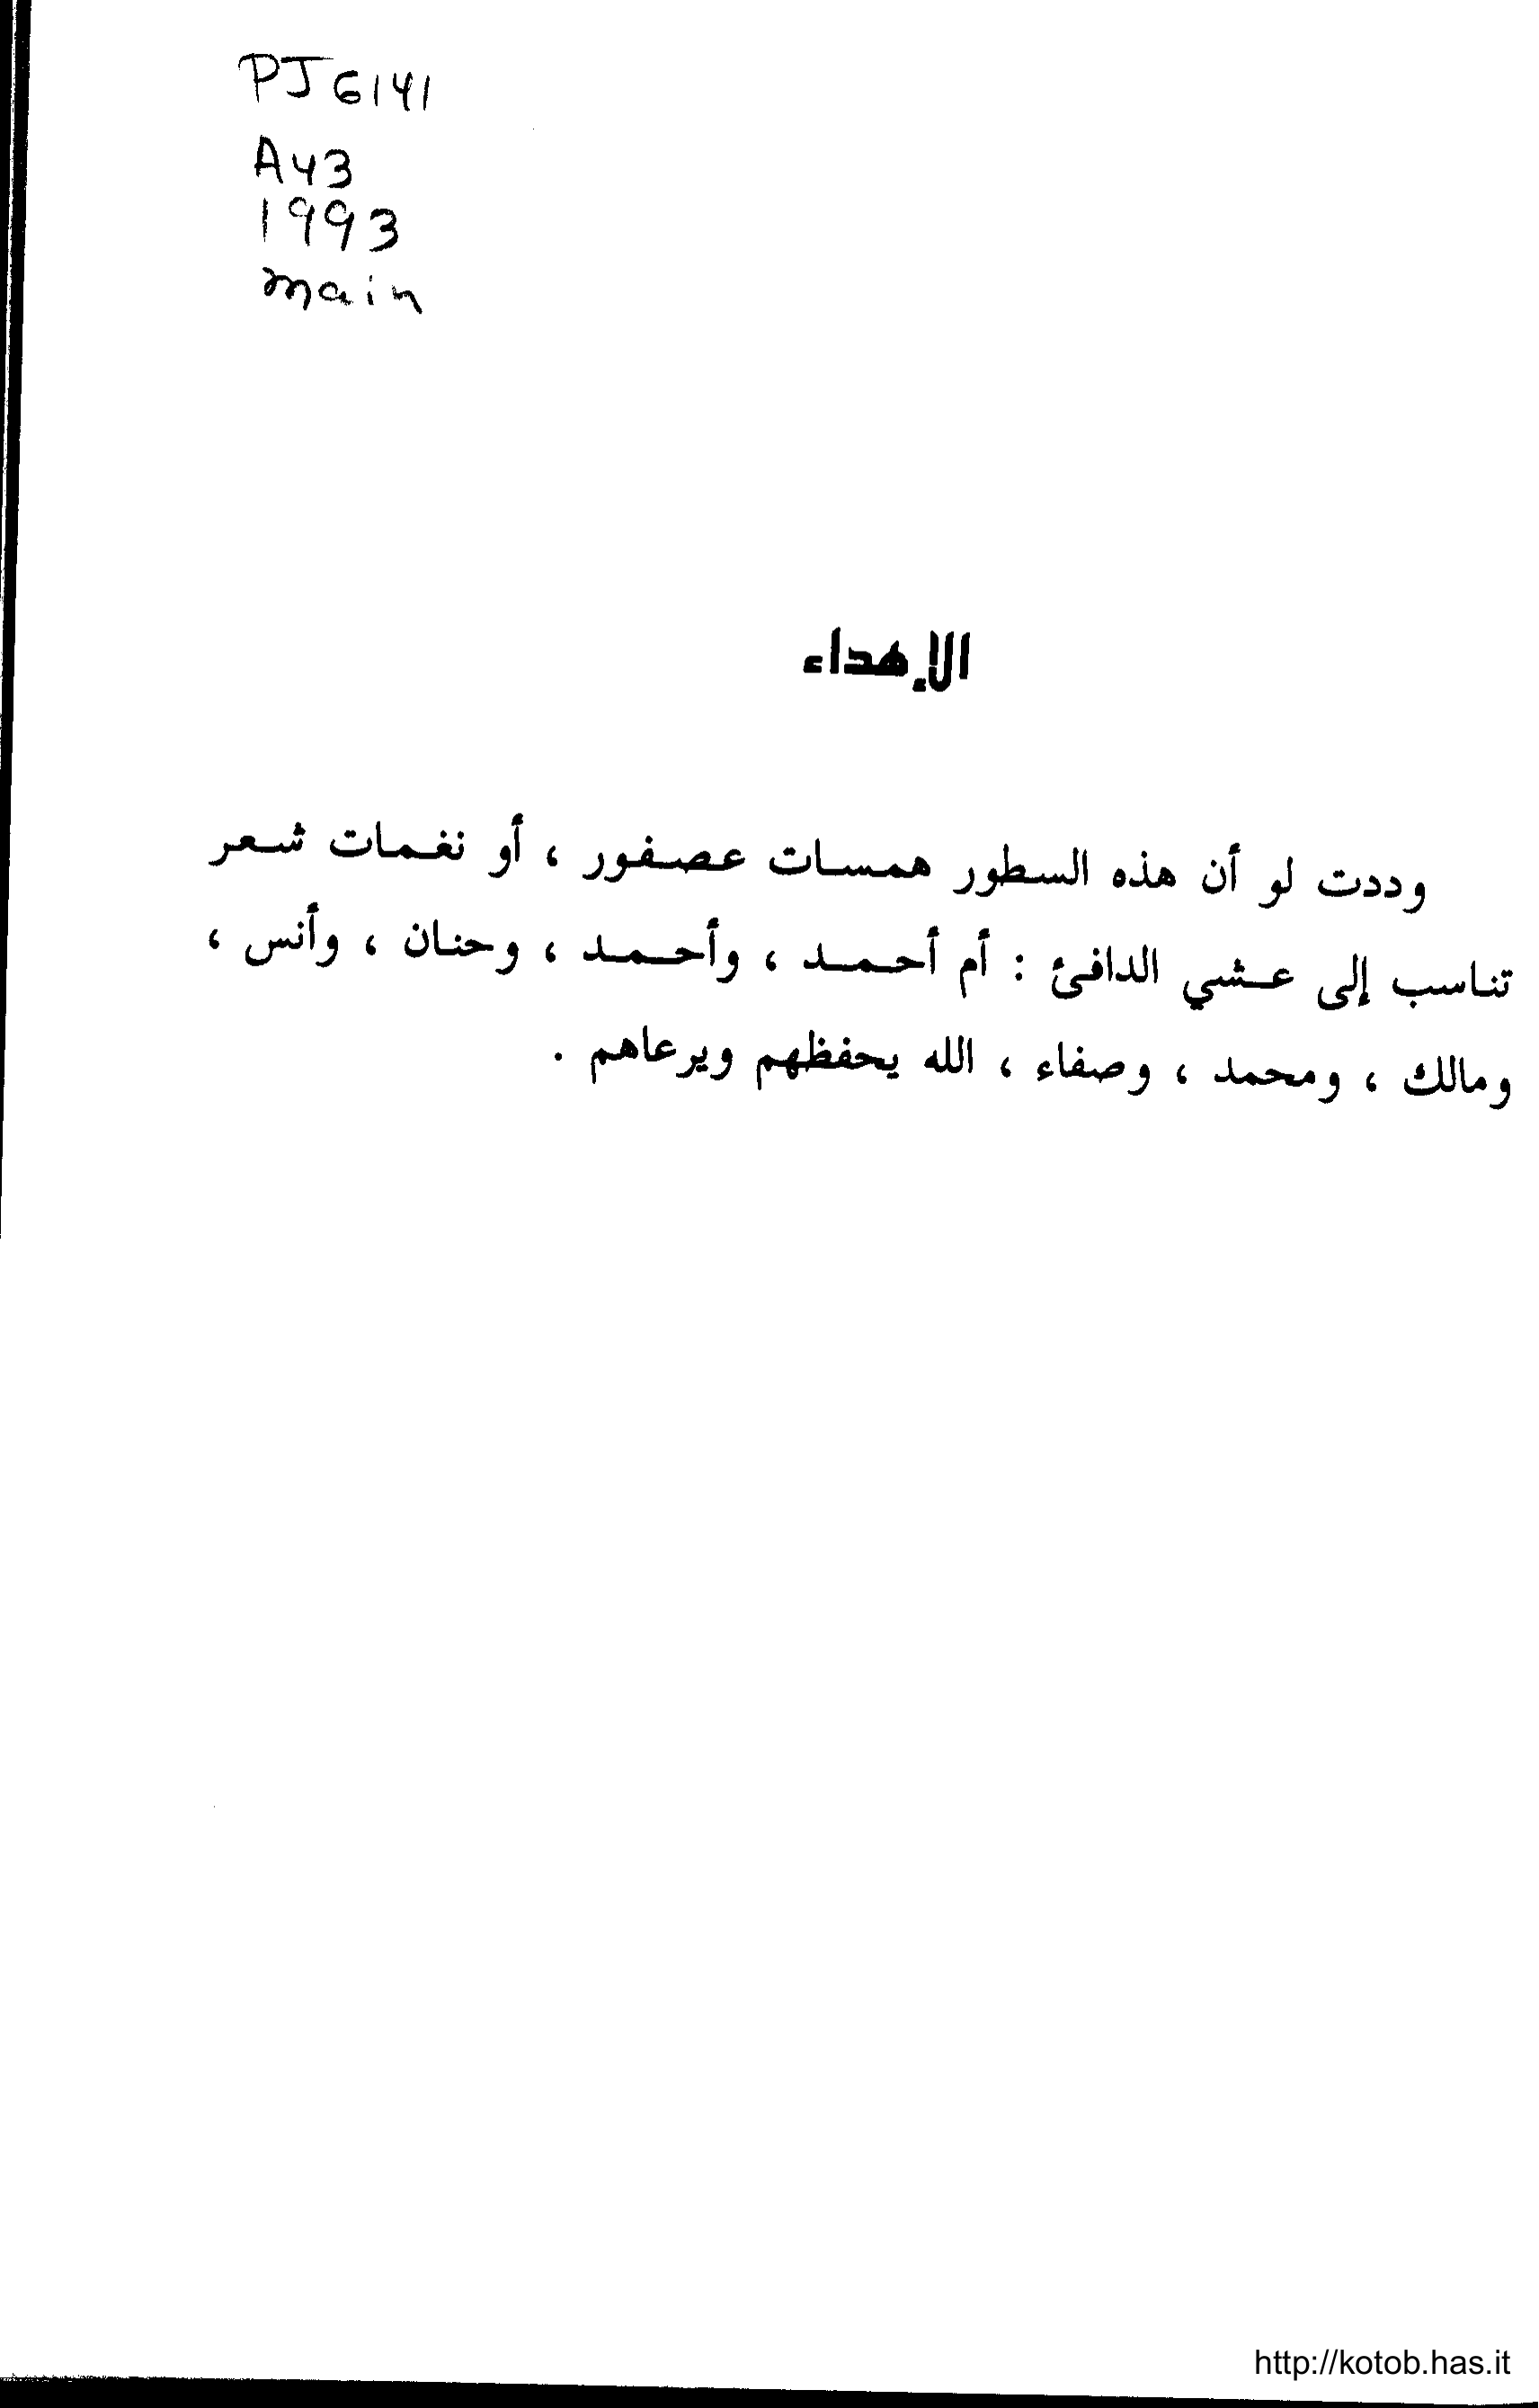 PJ6141
A43
1993
main
الإهداء
وددت لو أن هذه السطور همسات عصفور ، أو نغمات شعر
تناسب إلى عشي الدافئ : أم أحمد ، وأحمد ، وحنان ، وأنس ،
ومالك ، ومحمد ، وصفاء ، الله يحفظهم ويرعاهم .
http://kotob.has.it